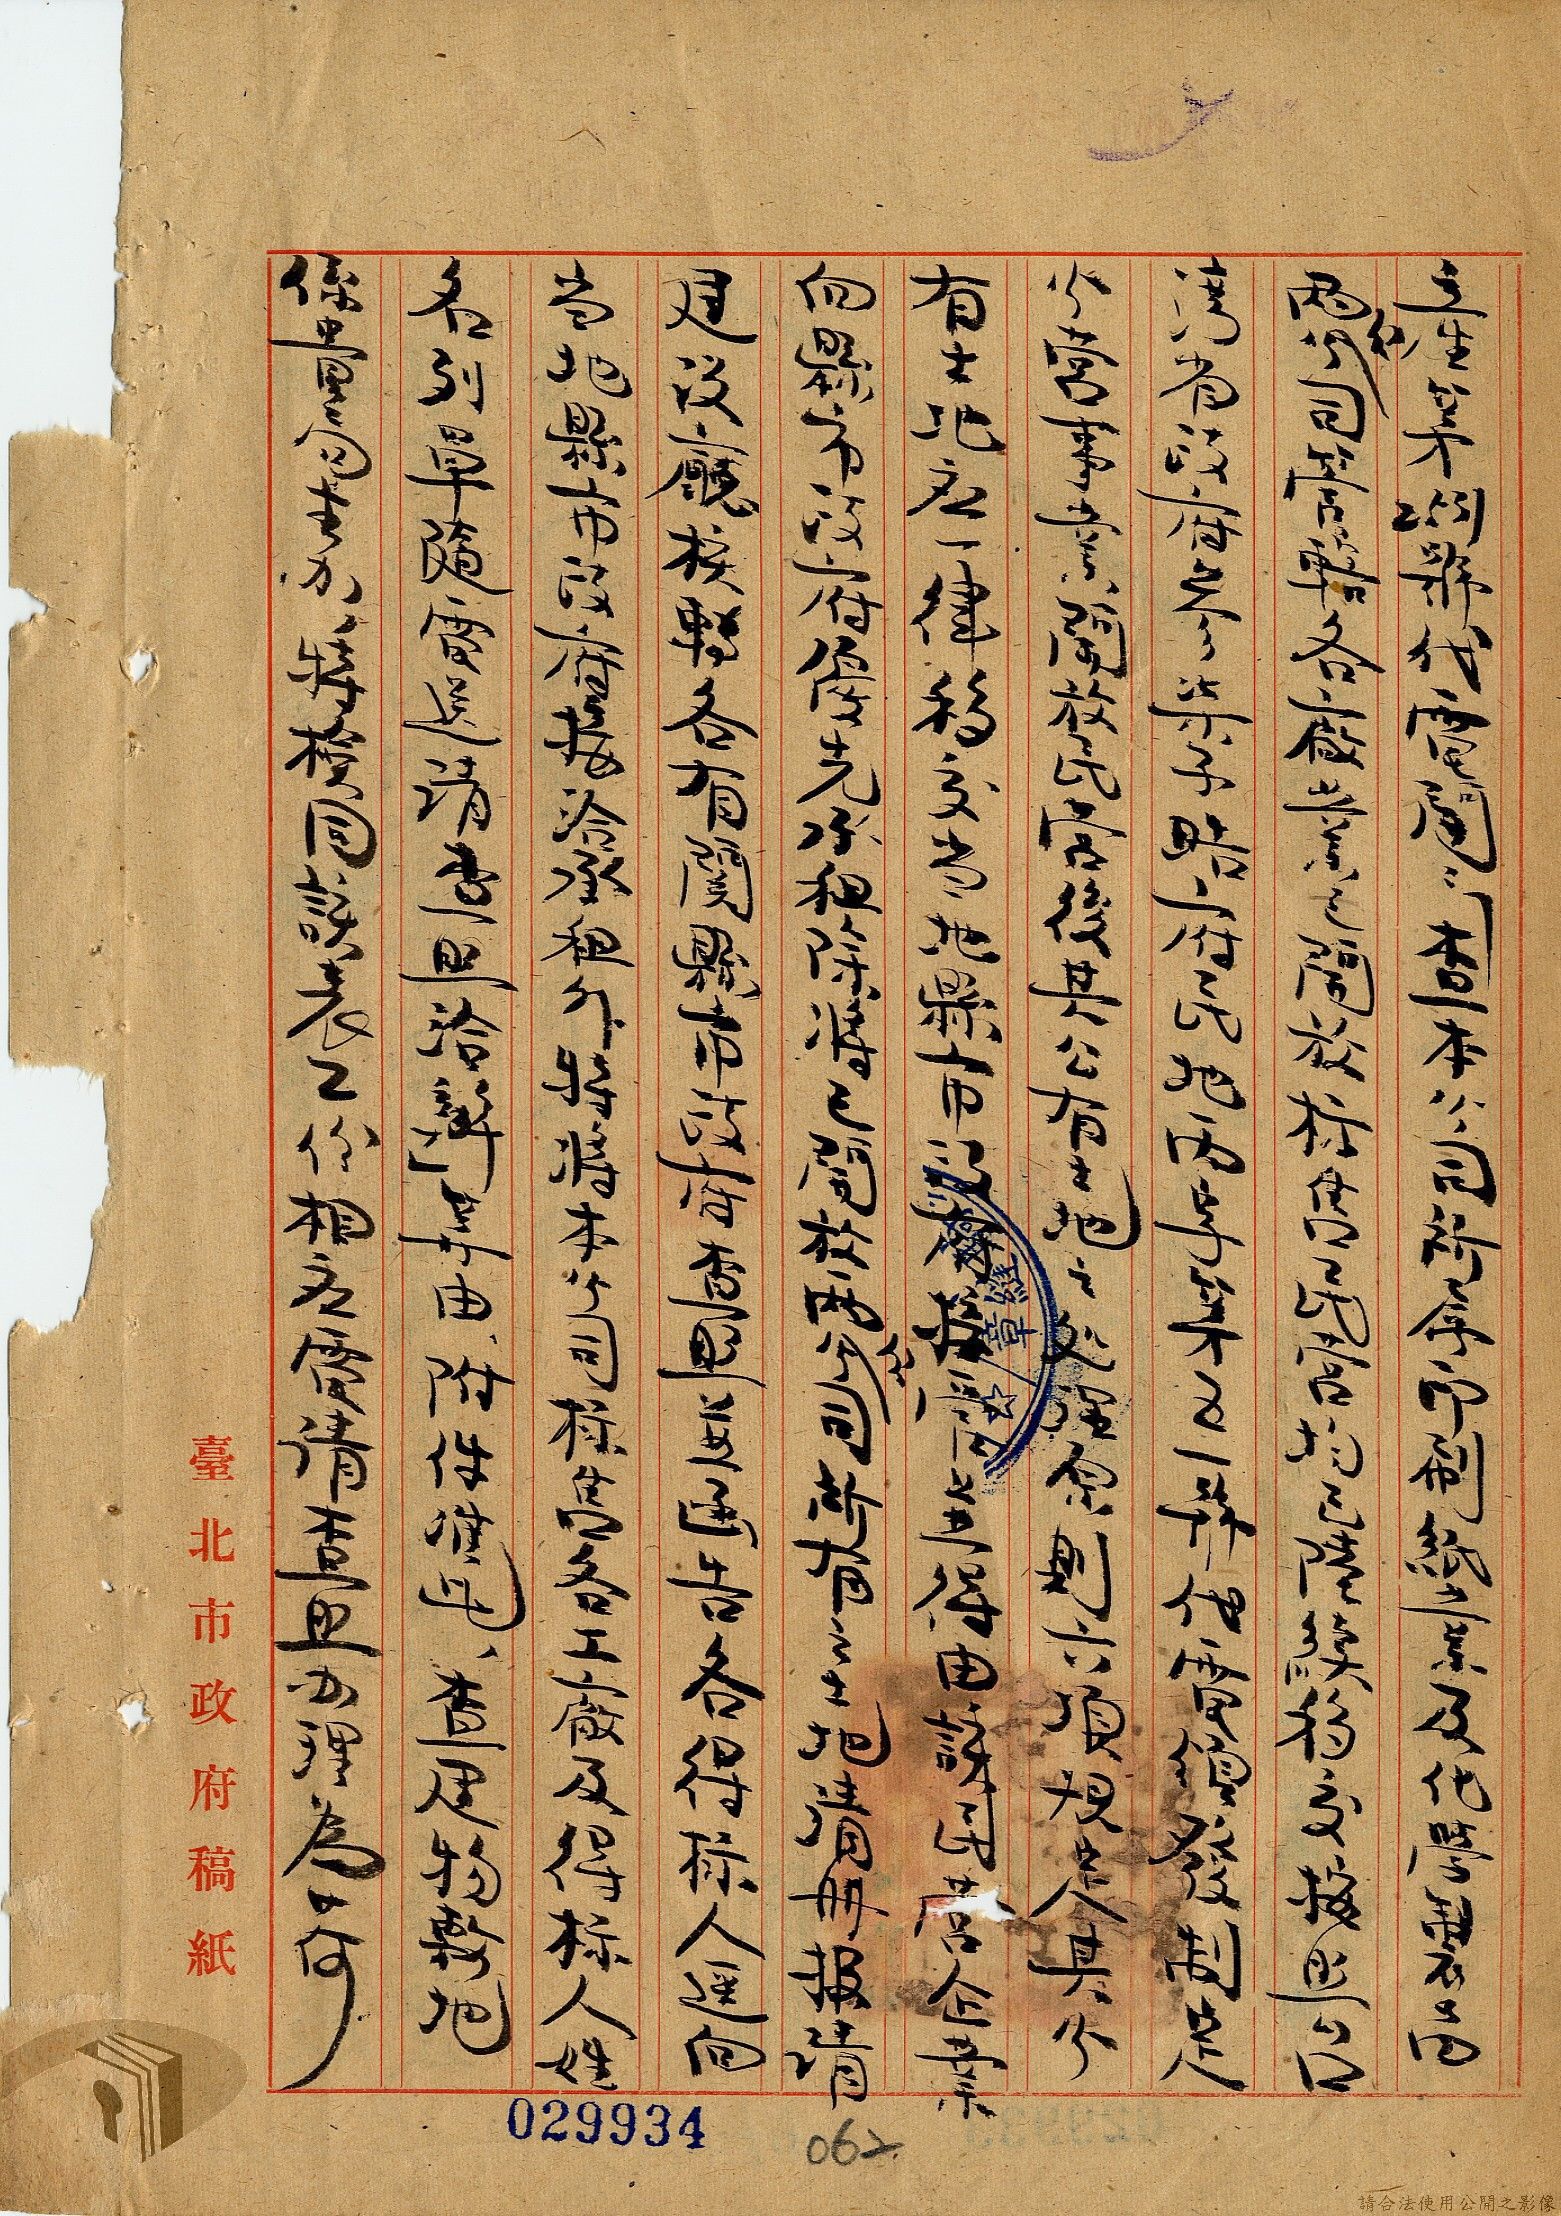 字第號代電開「查本公司所屬印刷紙業及化學製品
兩分公司營轄各廠業已開放標售民營均已陸續移交接照台
灣省政府府民地丙字第五一號代電頒發制定
公營事業開放民營後其公有土地之處理原則六項規定其公
有土地應一律移交當地縣市政府接管並得由該民營企業
向縣市政府優先承租除將已開放兩分公司所有之土地清冊報請
建設廳核轉各有關縣市政府查照並通告各得標人逕向
當地縣市政府接洽承租外特將本公司標售各工廠及得標人姓
名列單隨電送請查照洽辦」等由、附件准此、查建物敷地
係書辦、特檢同該表乙份相應電請查照办理為何
臺北市政府稿紙
029934
062
請合法使用公開之影像